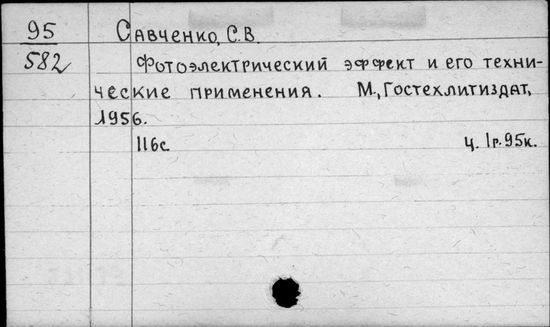 95 Савченко, С.В.
582 Фотоэлектрический эффект и его техни-
ческие применения. М., Гостехлитиздат,
1956.
116с. ц. 1р.95к.